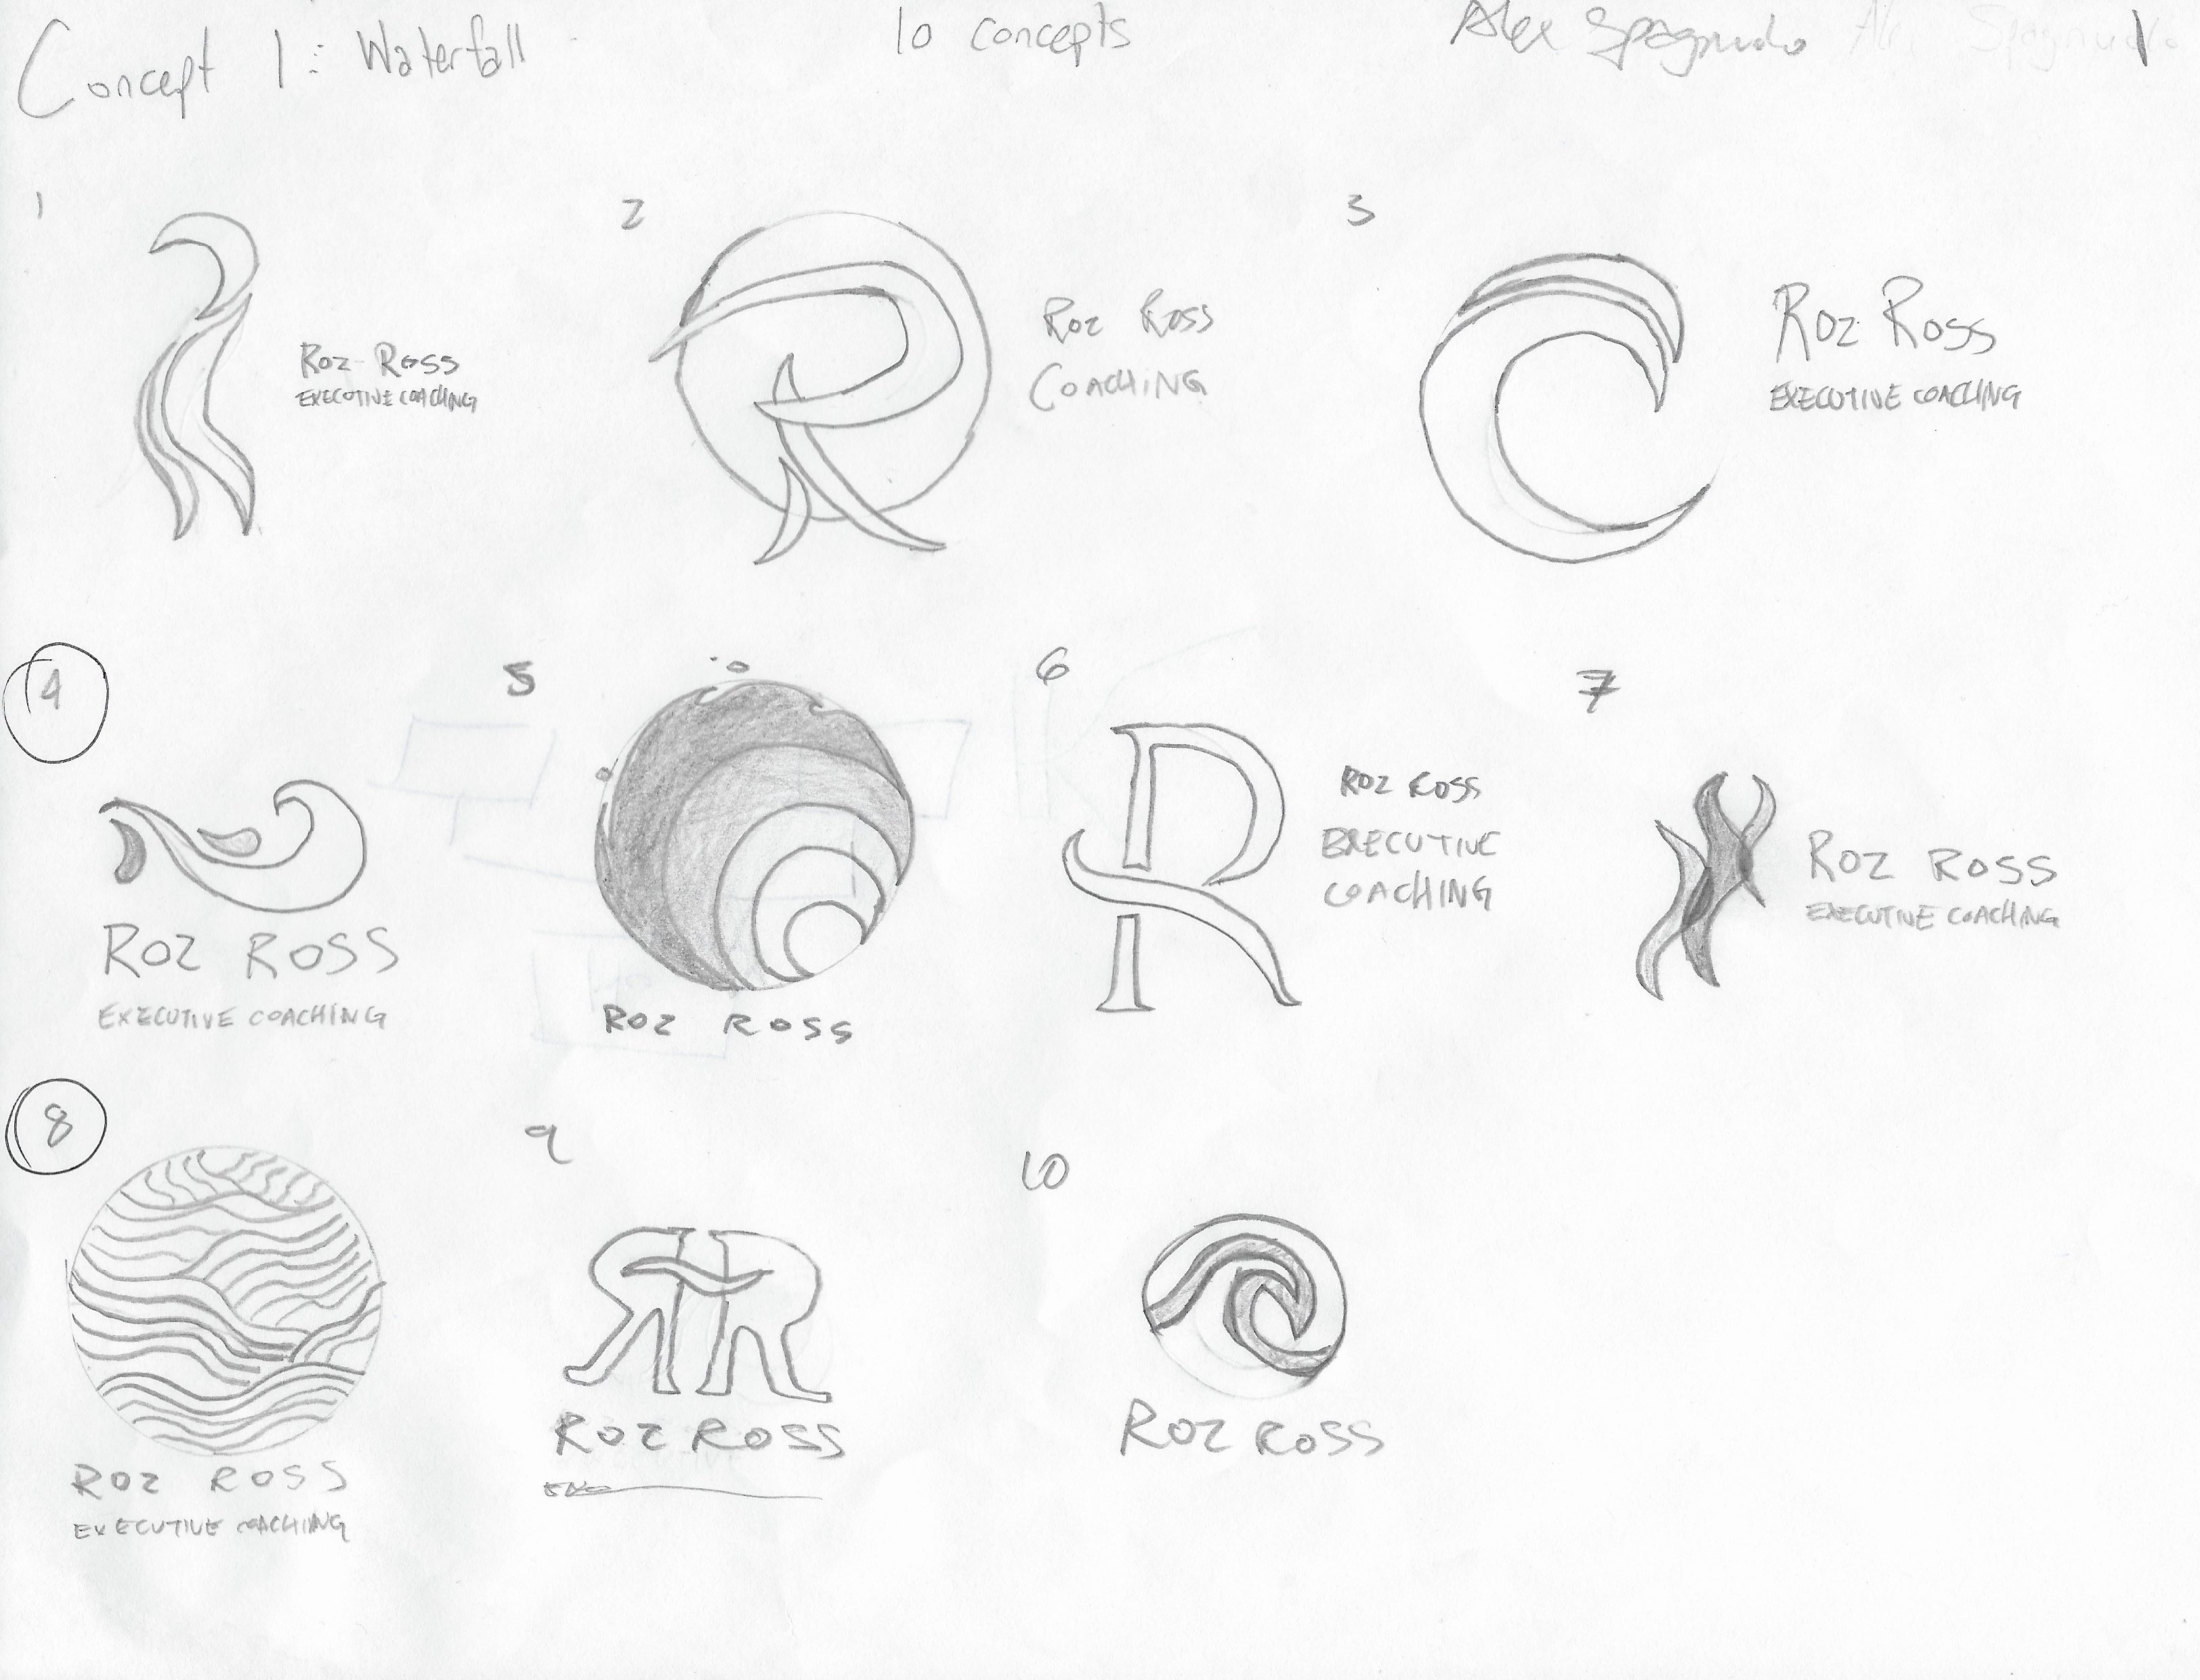 Concept 1: Waterfall
10 concepts
Alex Spagnuolo
1
1
Roz Ross
EXECUTIVE COACHING
2
Roz Ross
COACHING
3
Roz Ross
EXECUTIVE COACHING
4
ROZ ROSS
EXECUTIVE COACHING
5
ROZ ROSS
6
R
ROZ ROSS
EXECUTIVE
COACHING
7
ROZ ROSS
EXECUTIVE COACHING
8
ROZ ROSS
EXECUTIVE COACHING
9
RR
ROZ ROSS
10
ROZ ROSS